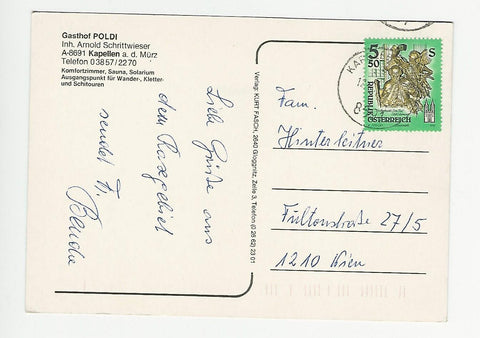 Gasthof POLDI
Inh. Arnold Schrittwieser
A-8691 Kapellen a. d. Mürz
Telefon 03857/2270
Komfortzimmer, Sauna, Solarium
Ausgangspunkt für Wander-, Kletter-
und Schitouren
Liebe Grüße aus
dem Raxgebiet
sendet Fr.
Verlag: KURT FASCH, 2640 Gloggnitz, Zeile 3, Telefon (0 26 62) 23 01
5 S
50
REPUBLIK
ÖSTERREICH
Fam.
Hinterleitner
Fultonstraße 27/5
1210 Wien